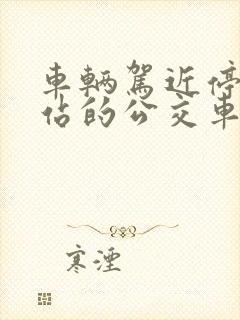 車輛駕近停
佔的公交車
寒湮